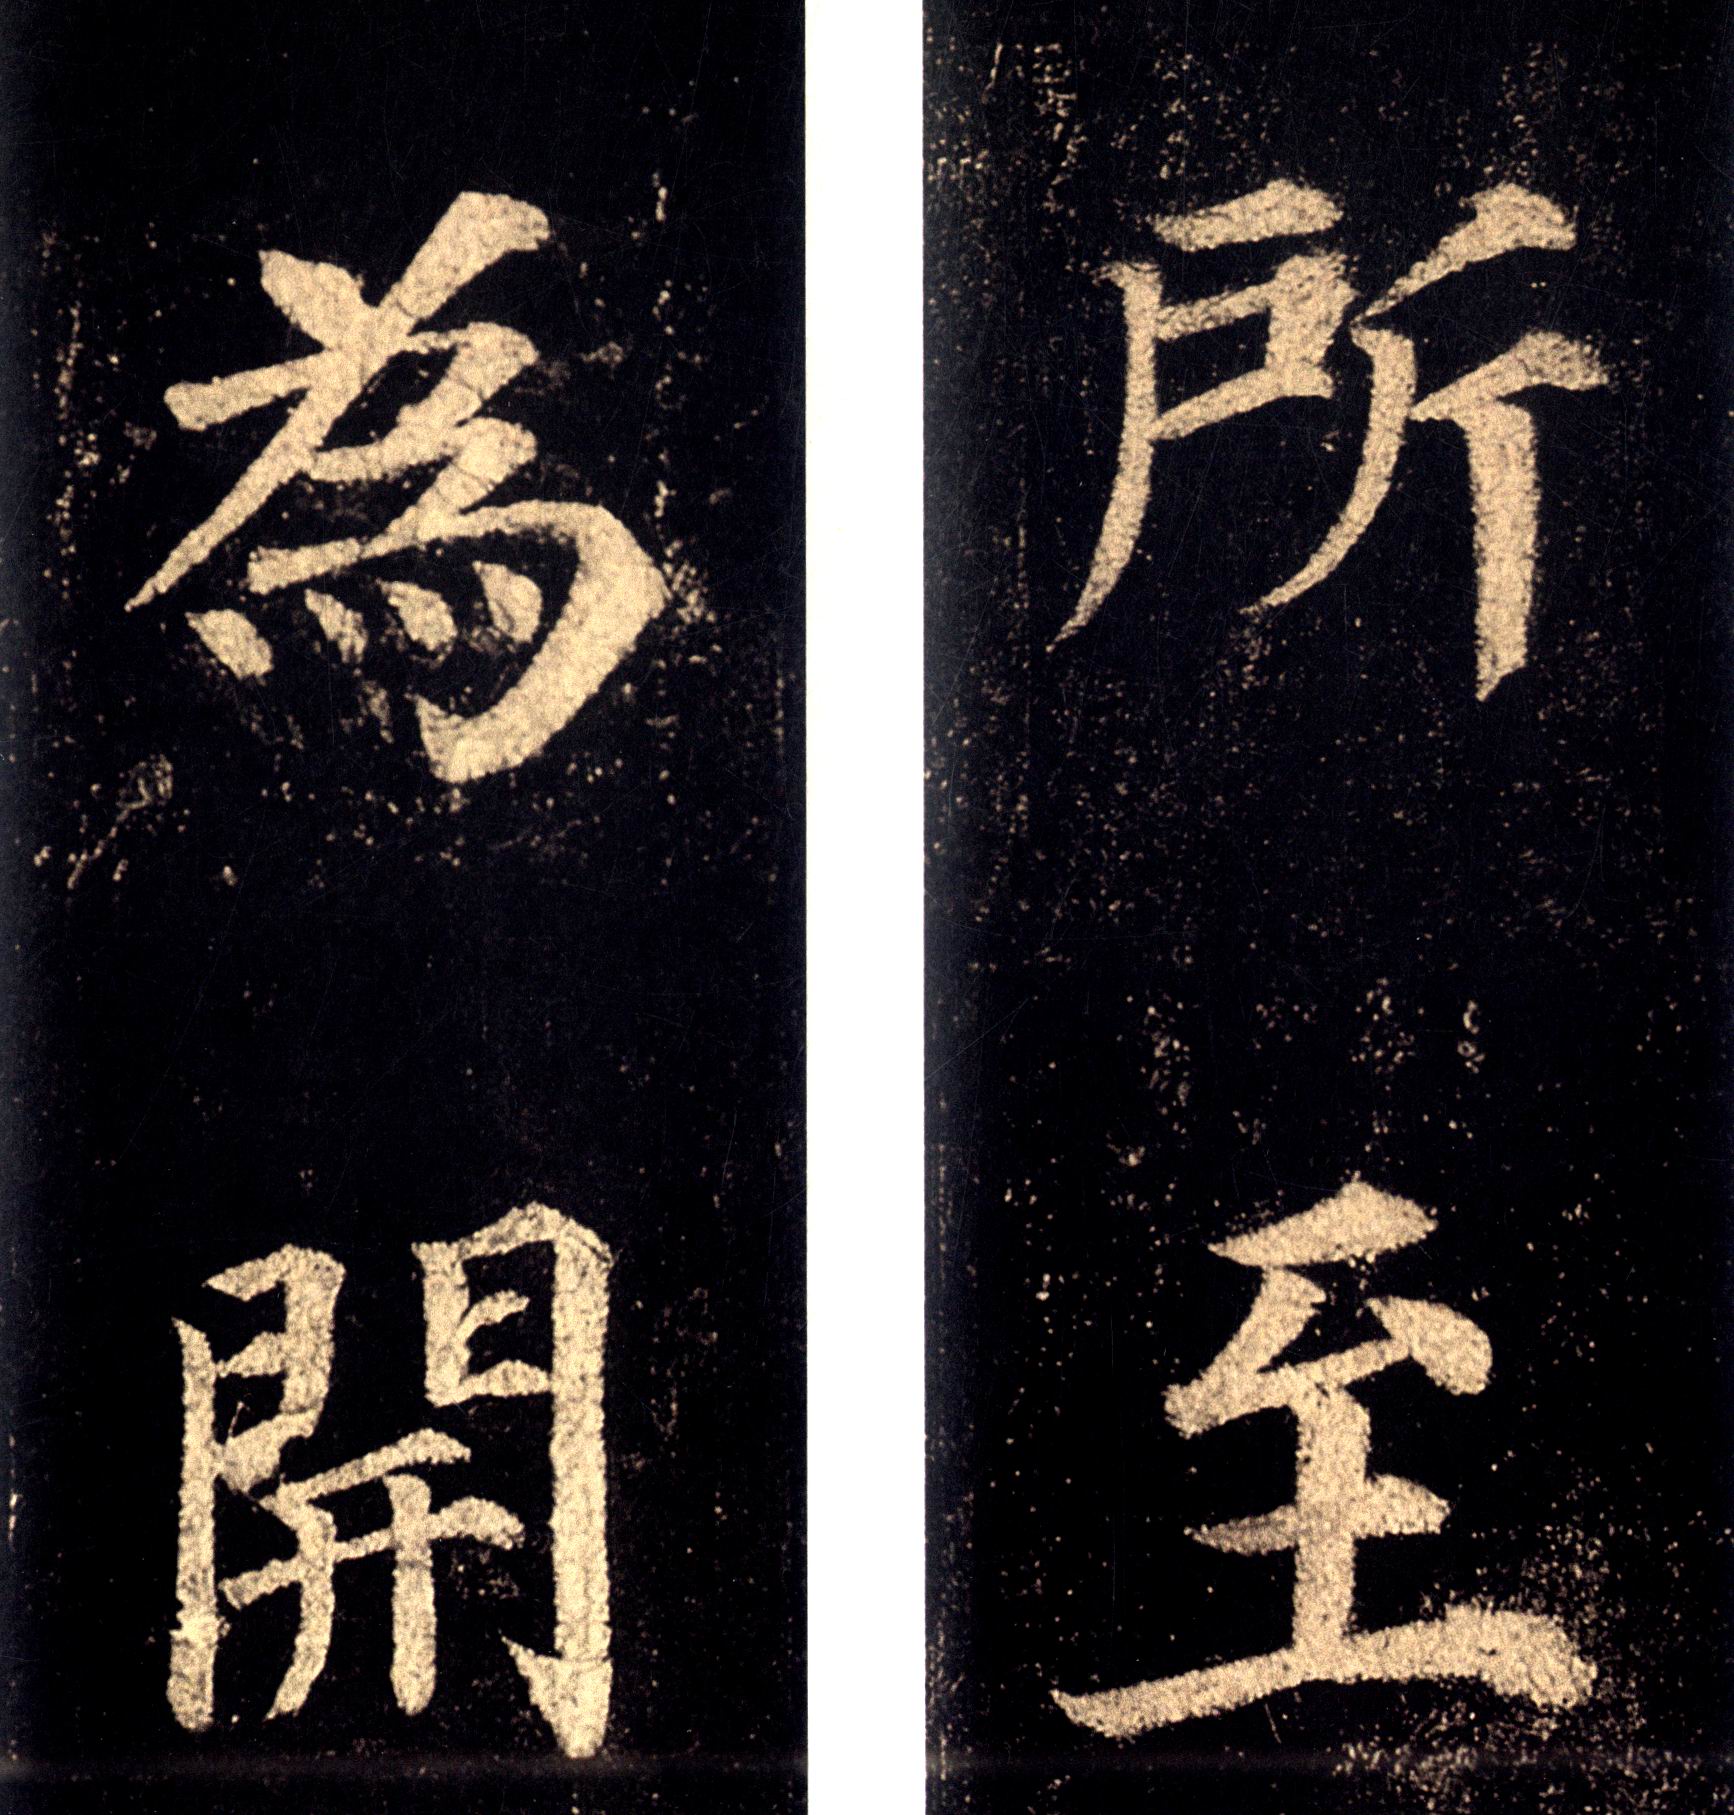 所至
為開